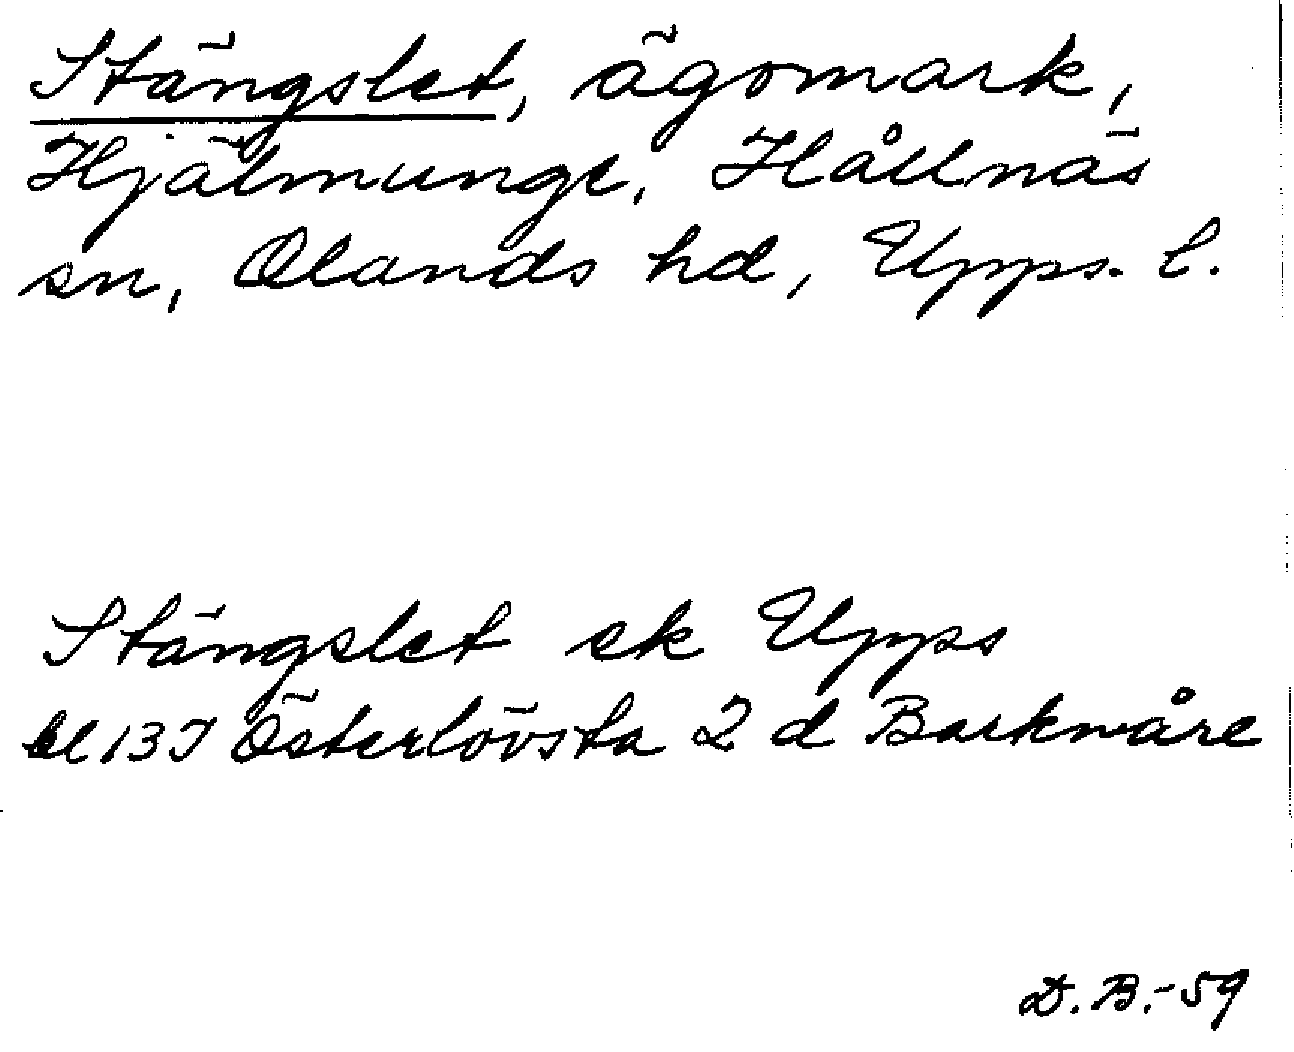 Stängslet, ägomark,
Hjälmunge, Hållnäs
sn, Olands hd, Upps. l.
Stängslet ek Upps
bl 13J Österlövsta 2 d Barknåre
D. B.-59